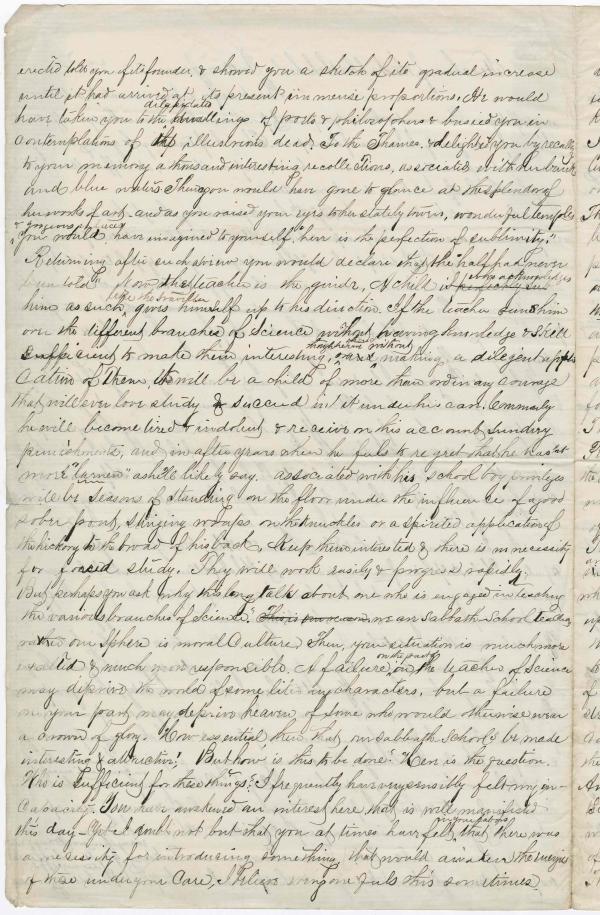 erected told you of its founder, & showed you a sketch of its gradual increase
until it had arrived at its present immense proportions. He would
dilapidated
have taken you to the dwellings of poets & philosophers & busied you in
contemplations of the illustrious dead. To the Thames & delighted you by recalling
to your memory a thousand interesting recollections, associated with her banks
and blue waters. Then you would have gone to glance at the splendor of
her works of art, and as you raised your eyes to her stately towers, wonderful temples
"You would have imagined to yourself, "here is the perfection of sublimity."
Returning after such a view you would declare that the "half had never
been told" Now the teacher is the guide, A child who acknowledges
like the traveller
him as such, gives himself up to his direction. If the teacher runs him
over the different branches of science without having knowledge & skill
sufficient to make them interesting, making a diligent
of them, it will be a child of more than ordinary courage
that will ever love study & succeed in it under his care. Commonly
he will become tired & indolent & receive on his account sundry
punishments, and in after years when he fails to regret that he has'nt
more "larned" as he'll likely say. associated with his school boy privileges
will be seasons of standing on the floor under the influence of a good
sober pout, stinging on the knuckles or a spirited application of
the hickory to the broad of his back. Keep them interested & there is no necessity
for forced study. They will work easily & progress rapidly.
But perhaps you ask why this long talk about one who is engaged in teaching
the various branches of Science." we are Sabbath School teachers
our sphere is moral Culture. Then, your situation is much more
exalted & much more responsible. A failure on the part of the teacher of Science
may deprive the world of some literary characters, but a failure
on your part may deprive heaven of some who would otherwise wear
a crown of glory. How essential then that our Sabbath Schools be made
interesting & attractive! But how is this to be done? Here is the question.
Who is sufficient for these things? I frequently have very sensibly felt my in-
capacity. You have awakened an interest here that is well manifested
this day—Yet I doubt not but that you at times have felt that there was
a necessity for introducing something that would awaken the energies
of those under your Care, I believe every one feels this sometimes.